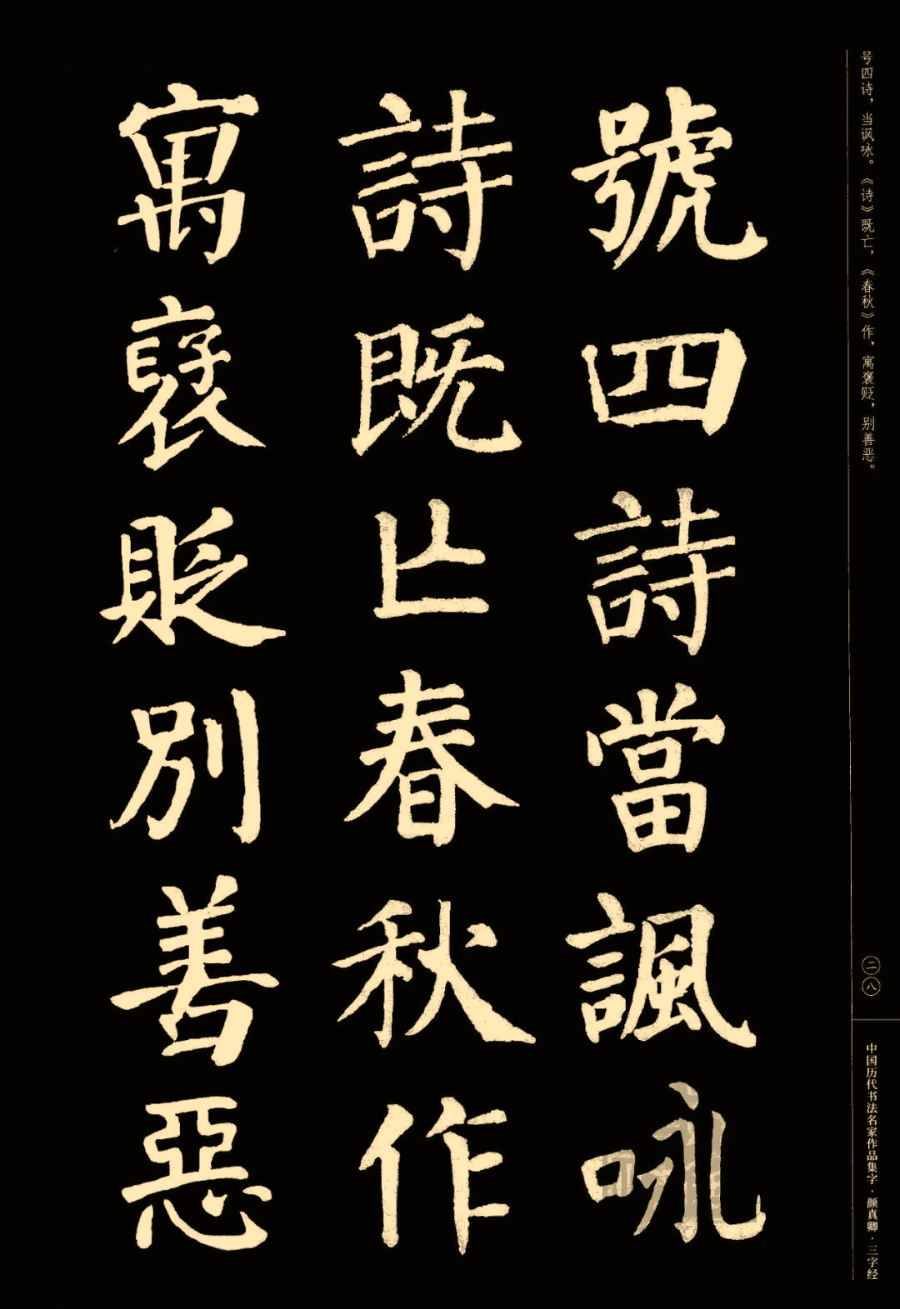 號四詩當諷咏
詩既亡春秋作
寓襃貶別善惡
号四诗，当讽咏。《诗》既亡，《春秋》作，寓褒贬，别善恶。
二八
中国历代书法名家作品集字·颜真卿·三字经